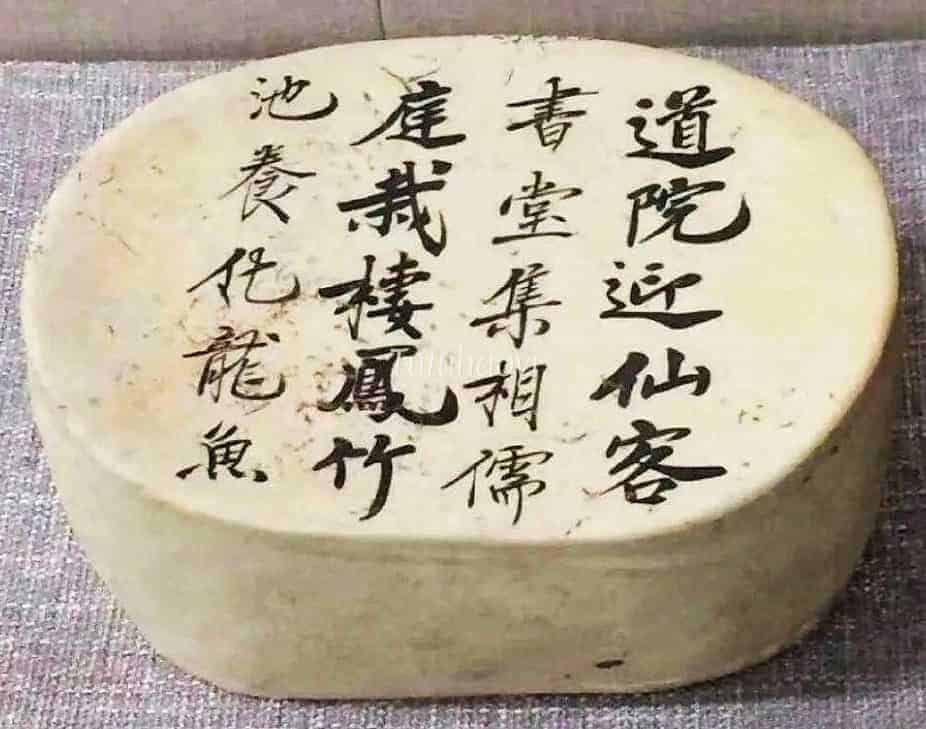 道院迎仙客
書堂集相儒
庭栽棲鳳竹
池養化龍魚